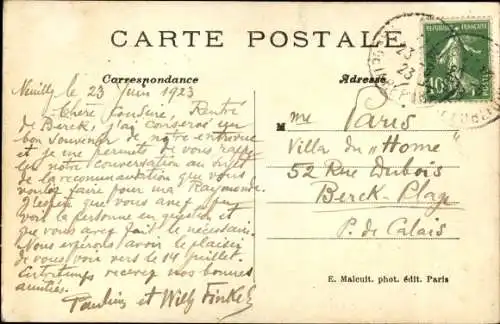 CARTE POSTALE
Correspondance
Adresse
RÉPUBLIQUE FRANÇAISE
10
POSTES
Neuilly le 23 Juin 1923
Chère Cousine. Rentré
de Berck, j'ai conservé un
bon souvenir de notre entrevue
et je me permets de vous rappeler
notre conversation au sujet
de la recommandation que vous
voulez faire pour ma Raymonde.
J'espère que vous avez pu
voir la personne en question et
que vous avez fait le nécessaire.
Nous espérons avoir le plaisir
de vous voir vers le 14 Juillet.
Entretemps recevez nos bonnes
amitiés.
Paulin et Willy Finkel
Mme Paris
Villa du "Home"
52 Rue Dubois
Berck-Plage
P. de Calais
E. Malcuit. phot. édit. Paris